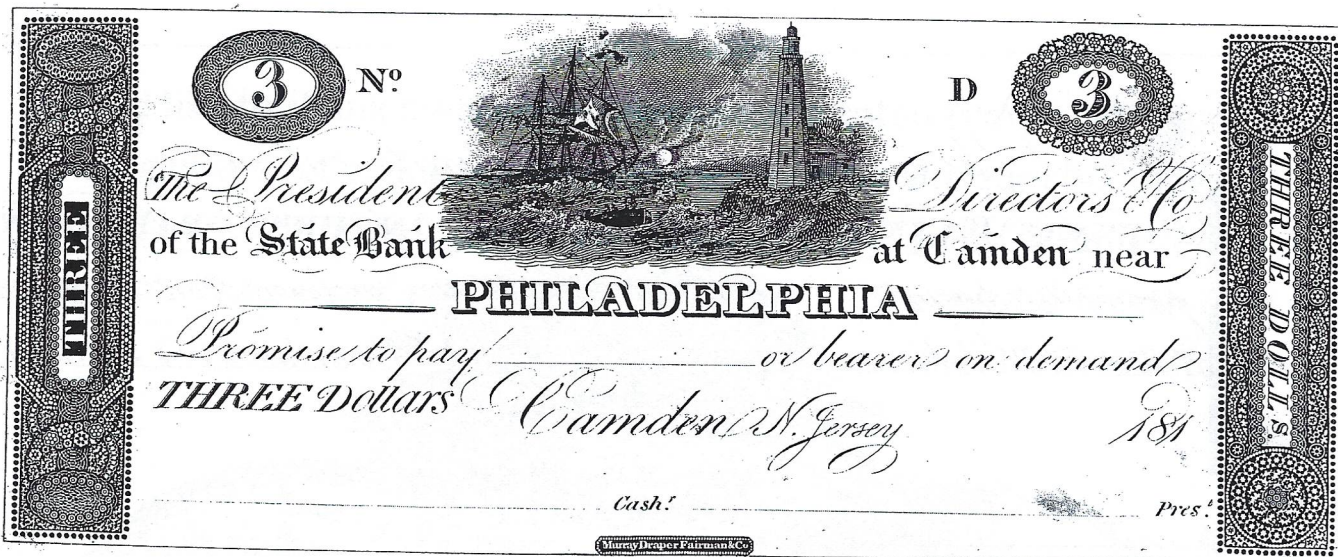 THREE
3 Nº D 3
The President Directors & Co
of the State Bank at Camden near
PHILADELPHIA
Promise to pay or bearer on demand
THREE Dollars Camden N. Jersey 181
Cashr. Prest.
Murray Draper Fairman & Co
THREE DOLLs.